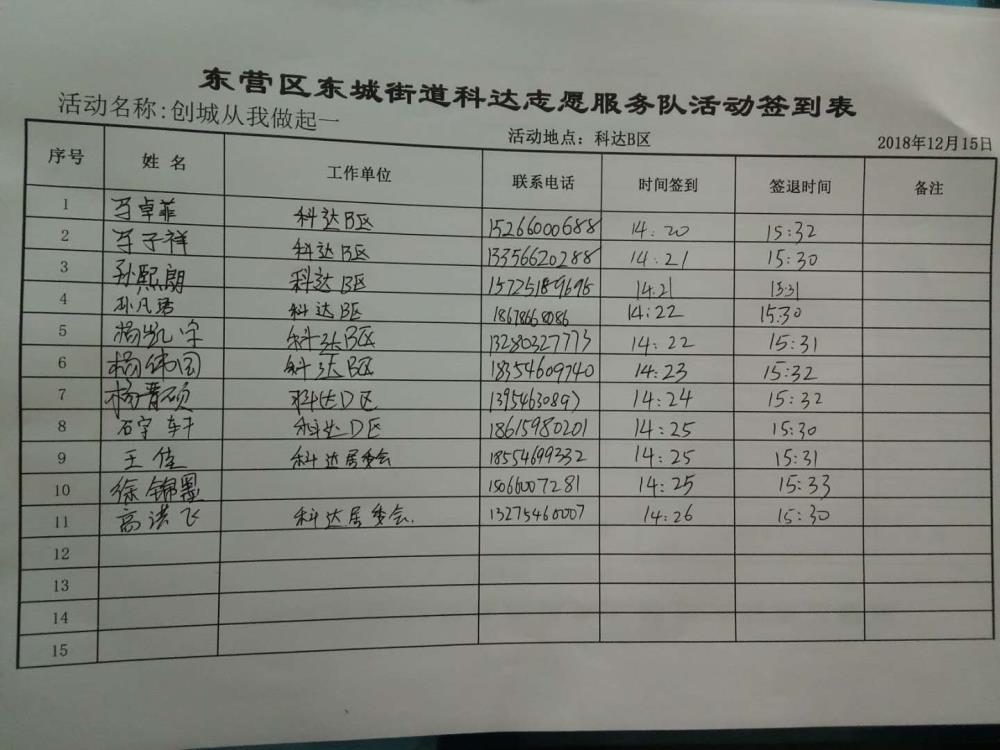 东营区东城街道科达志愿服务队活动签到表
活动名称:创城从我做起一
活动地点：科达B区
2018年12月15日
序号 姓名 工作单位 联系电话 时间签到 签退时间 备注
1 卓菲 科达B区 15266000688 14:20 15:32
2 子祥 科达B区 13356620288 14:21 15:30
3 孙熙朗 科达B区 15725189695 14:21 15:31
4 孙凡 科达B区 18678668086 14:22 15:30
5 杨凯宇 科达B区 13280327773 14:22 15:31
6 杨伟国 科达B区 18354609740 14:23 15:32
7 杨晋硕 科达D区 13954630897 14:24 15:32
8 石宇轩 科达D区 18615980201 14:25 15:30
9 王佳 科达居委会 18554699332 14:25 15:31
10 徐锦墨 15066007281 14:25 15:33
11 高洪飞 科达居委会. 13275460007 14:26 15:30
12
13
14
15